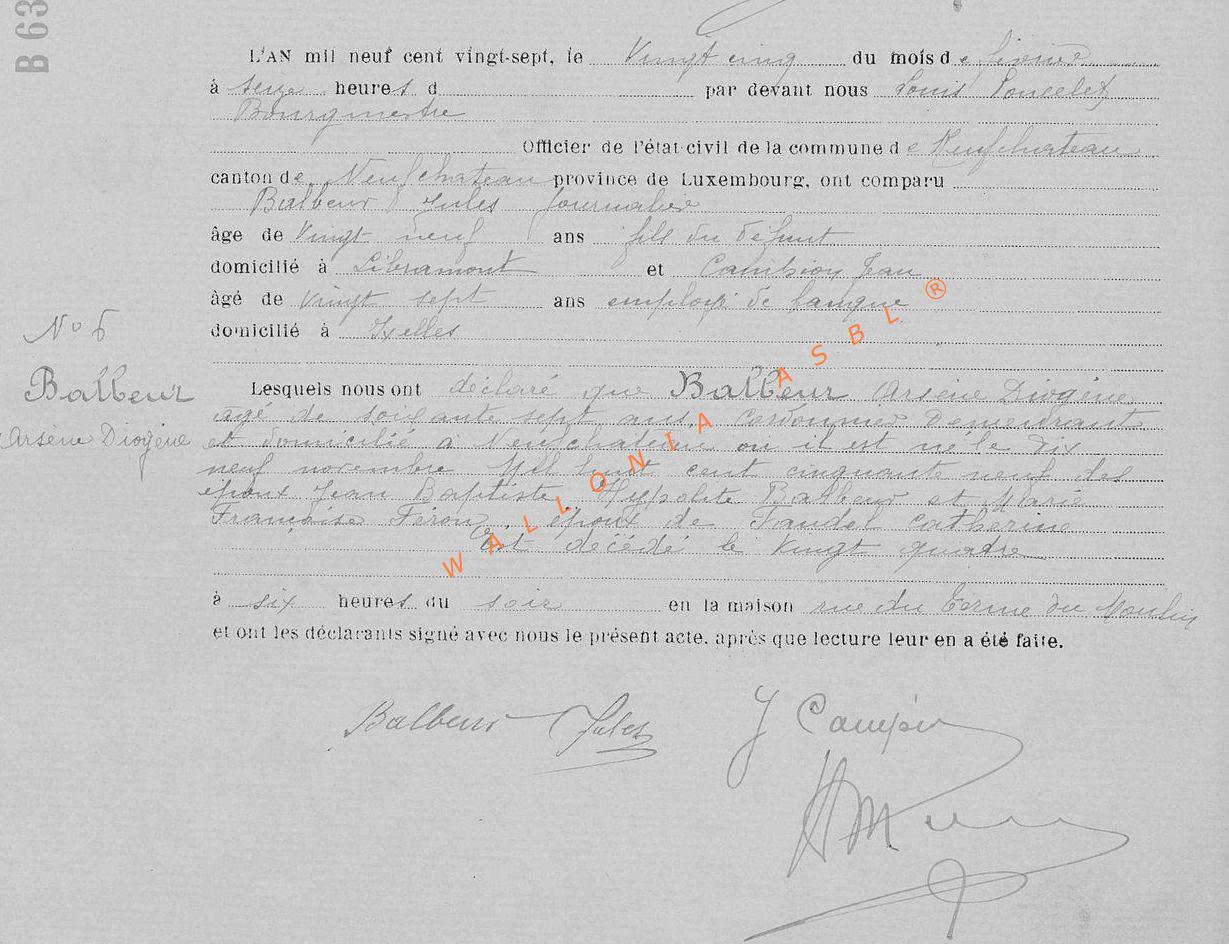 B 63
L'AN mil neuf cent vingt-sept, le Vingt cinq du mois de février
à seize heures d par devant nous Louis Poncelet
Bourgmestre
Officier de l'état civil de la commune de Neufchateau
canton de Neufchateau province de Luxembourg, ont comparu
Balbeur Jules Journalier
âge de Vingt neuf ans fils du défunt
domicilié à Libramont et Jean
âgé de Vingt sept ans employé de banque
domicilié à Ixelles
No 6
Balbeur
Arsène Diogène
Lesquels nous ont déclaré que Balbeur Arsène Diogène
agé de soixante sept ans, Cordonnier demeurant
et domicilié a Neufchateau ou il est né le dix
neuf novembre Mil huit cent cinquante neuf des
époux Jean Baptiste Hypolite Balbeur et Marie
Françoise Féron, époux de Taudel Catherine
Est décédé le Vingt quatre
à six heures du soir en la maison rue du Terme du Moulin
et ont les déclarants signé avec nous le présent acte, après que lecture leur en a été faite.
Balbeur Jules J
WALLONIA ASBL ®